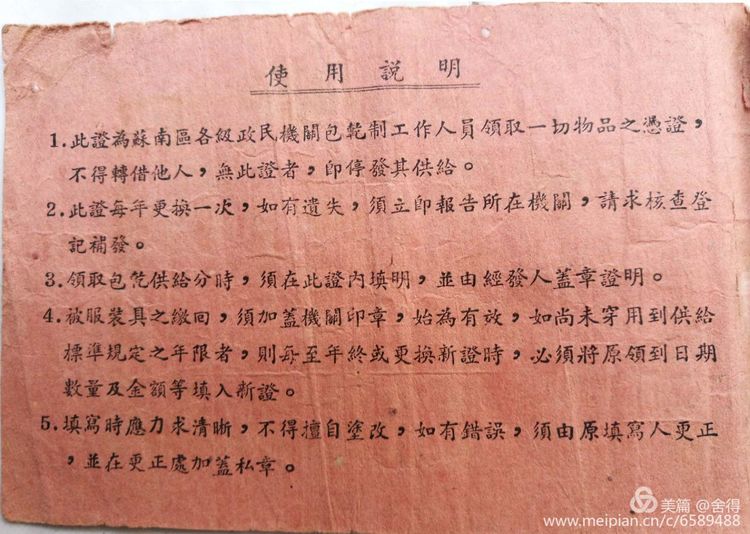 使用說明
1.此證為蘇南區各級政民機關包乾制工作人員領取一切物品之憑證，
不得轉借他人，無此證者，即停發其供給。
2.此證每年更換一次，如有遺失，須立即報告所在機關，請求核查登
記補發。
3.領取包乾供給分時，須在此證內填明，並由經發人蓋章證明。
4.被服裝具之繳回，須加蓋機關印章，始為有效，如尚未穿用到供給
標準規定之年限者，則每至年終或更換新證時，必須將原領到日期
數量及金額等填入新證。
5.填寫時應力求清晰，不得擅自塗改，如有錯誤，須由原填寫人更正
，並在更正處加蓋私章。
美篇 @舍得
www.meipian.cn/c/6589488